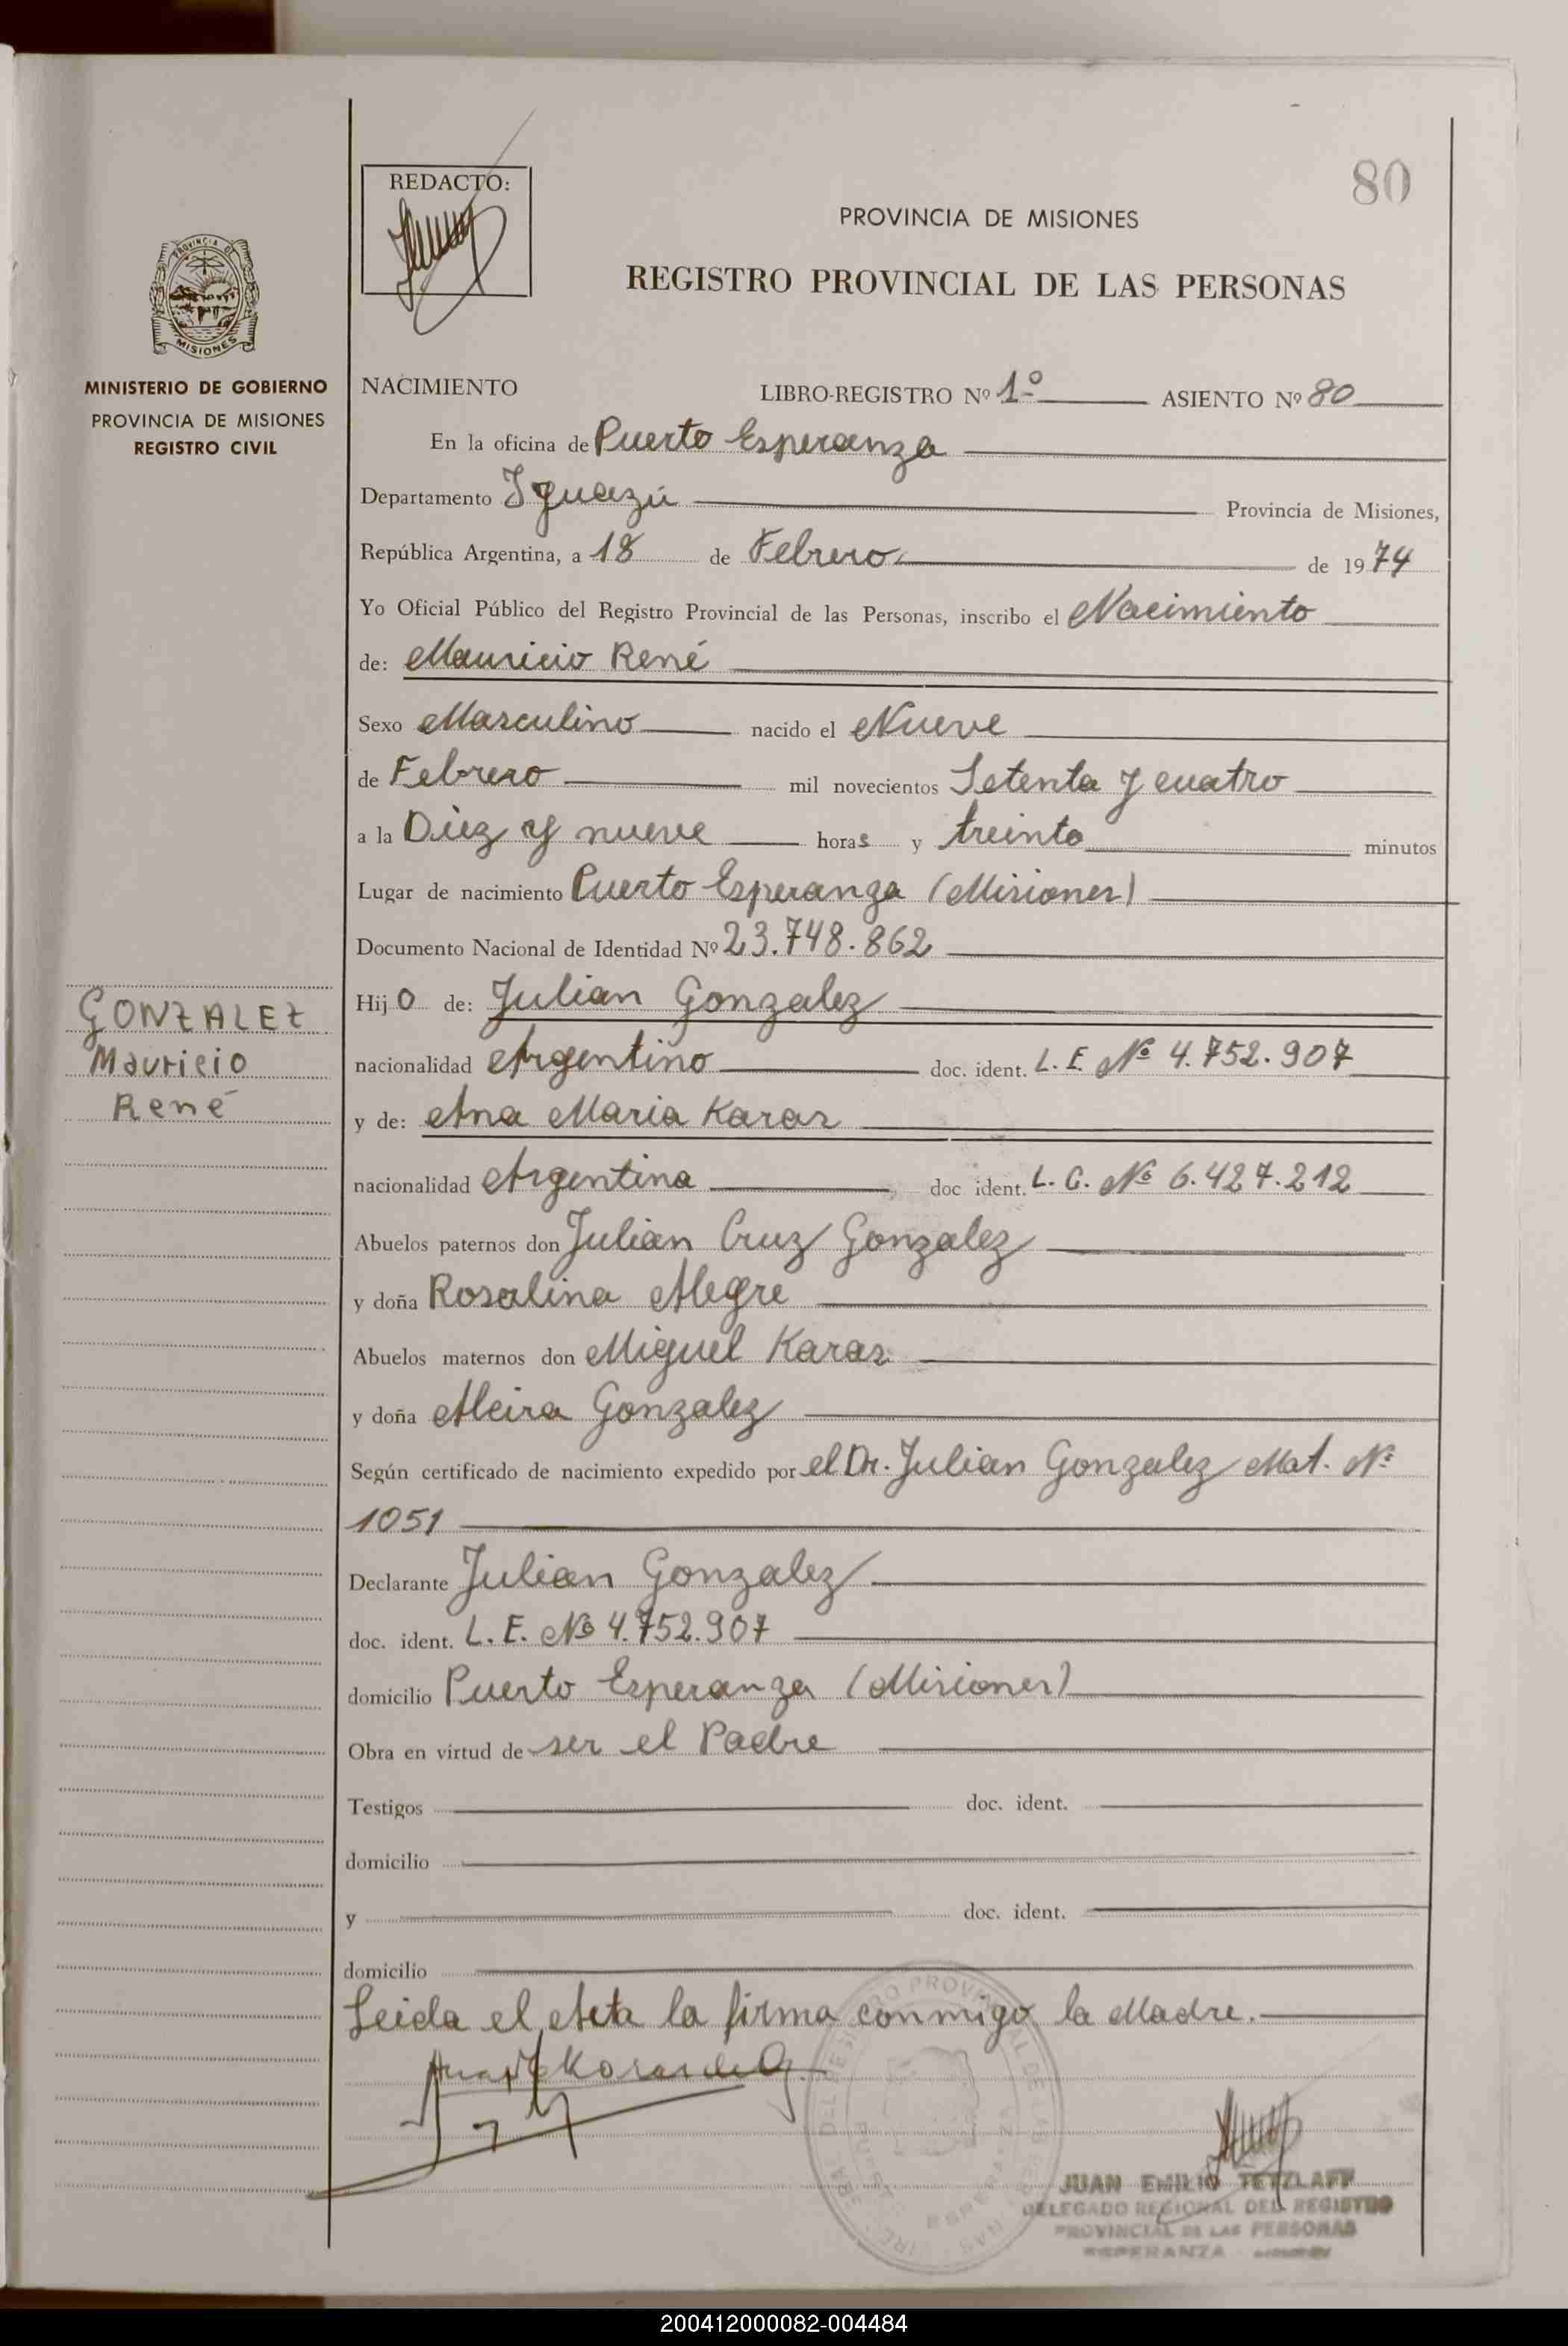 80
REDACTO:
PROVINCIA DE MISIONES
REGISTRO PROVINCIAL DE LAS PERSONAS
PROVINCIA DE
MISIONES
MINISTERIO DE GOBIERNO
PROVINCIA DE MISIONES
REGISTRO CIVIL
NACIMIENTO LIBRO-REGISTRO Nº 1º ASIENTO Nº 80
En la oficina de Puerto Esperanza
Departamento Iguazú Provincia de Misiones,
República Argentina, a 18 de Febrero de 1974
Yo Oficial Público del Registro Provincial de las Personas, inscribo el Nacimiento
de: Mauricio René
Sexo Masculino nacido el Nueve
de Febrero mil novecientos Setenta y cuatro
a la Diez y nueve horas y treinta minutos
Lugar de nacimiento Puerto Esperanza (Misiones)
Documento Nacional de Identidad Nº 23.748.862
GONZALEZ
Mauricio
René
Hijo de: Julian Gonzalez
nacionalidad Argentino doc. ident. L. E. Nº 4.752.907
y de: Ana Maria Karas
nacionalidad Argentina doc ident. L. C. Nº 6.427.212
Abuelos paternos don Julian Cruz Gonzalez
y doña Rosalina Alegre
Abuelos maternos don Miguel Karas
y doña Alcira Gonzalez
Según certificado de nacimiento expedido por el Dr. Julian Gonzalez Mat. Nº
1051
Declarante Julian Gonzalez
doc. ident. L. E. Nº 4.752.907
domicilio Puerto Esperanza (Misiones)
Obra en virtud de ser el Padre
Testigos doc. ident.
domicilio
y doc. ident.
domicilio
Leida el Acta la firma conmigo la Madre.
JUAN EMILIO TETZLAFF
DELEGADO REGIONAL DEL REGISTRO
PROVINCIAL DE LAS PERSONAS
ESPERANZA
200412000082-004484